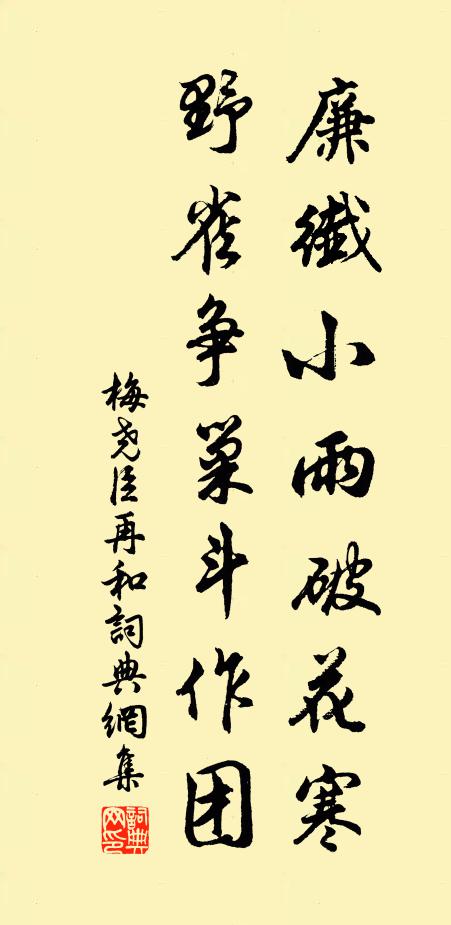 廉纖小雨破花寒
野雀争巢斗作团
梅尭臣再和詞典網集
詞典网印